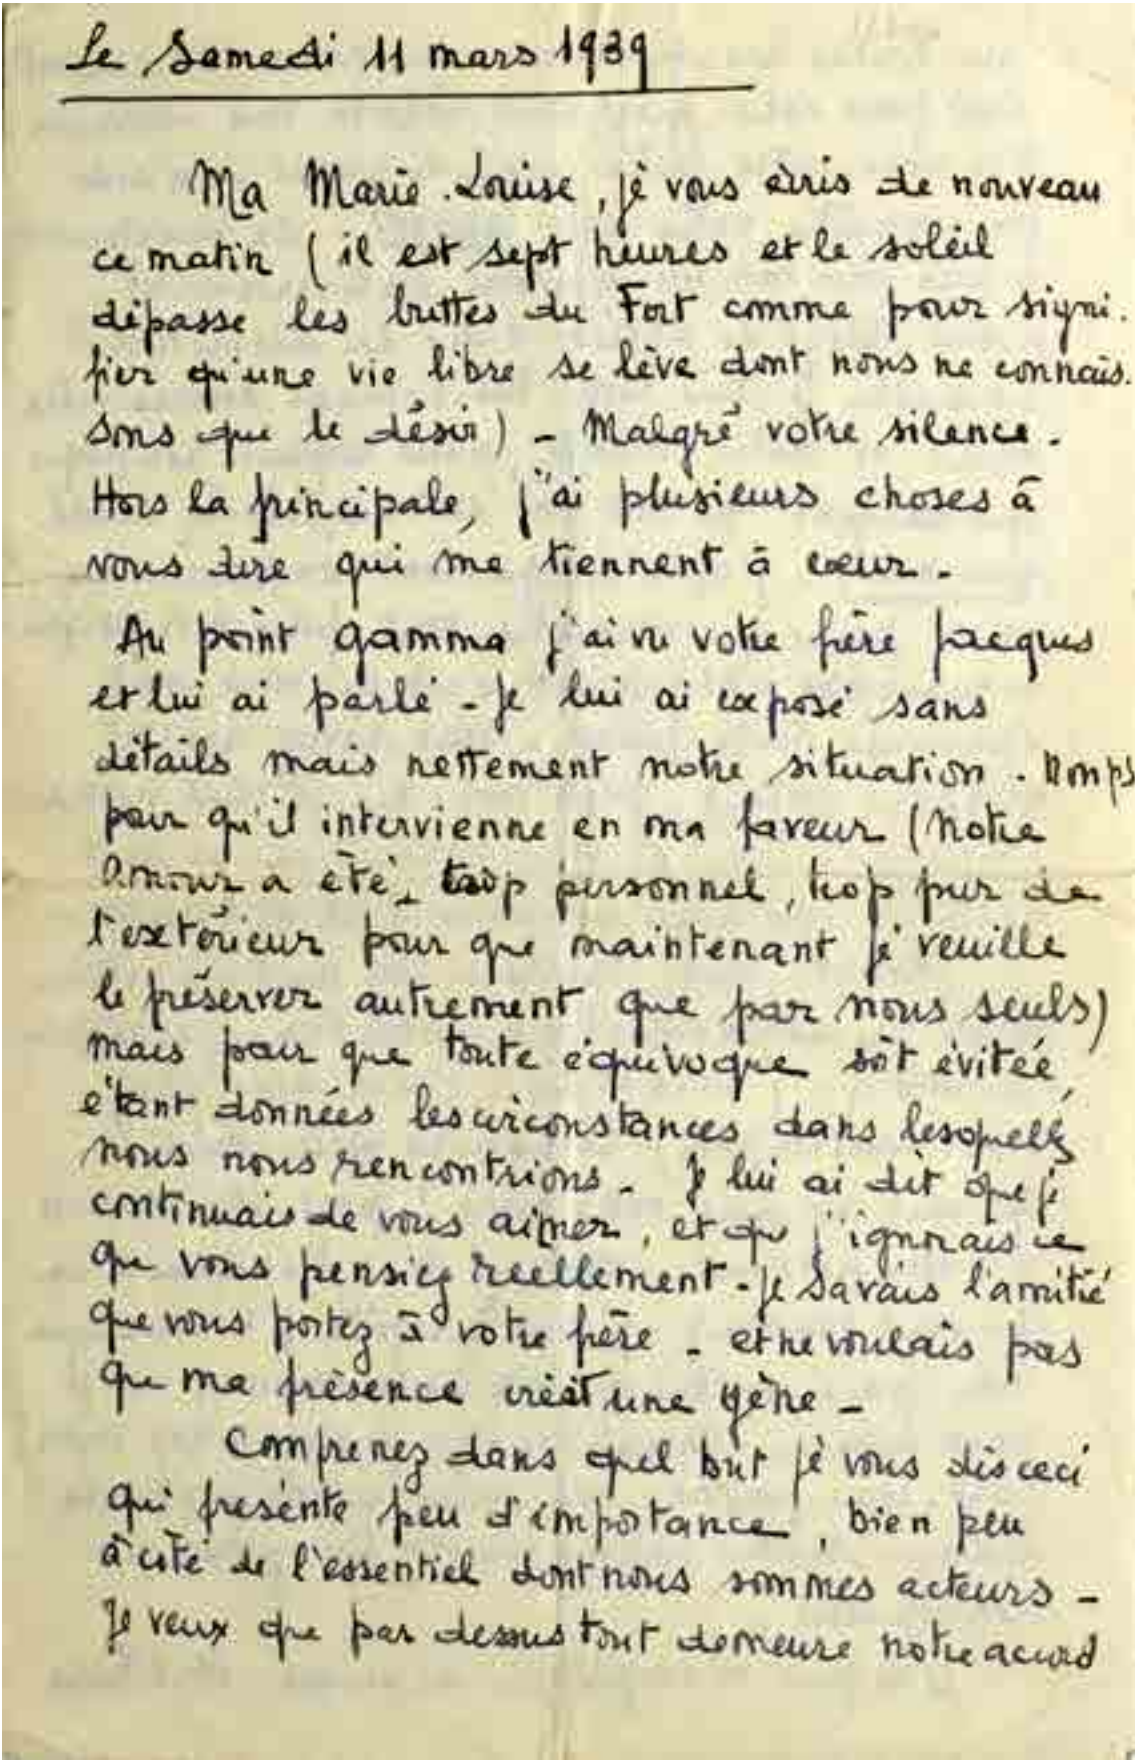 Le Samedi 11 mars 1939
Ma Marie-Louise, je vous écris de nouveau
ce matin (il est sept heures et le soleil
dépasse les buttes du Fort comme pour signi-
fier qu'une vie libre se lève dont nous ne connais-
sons que le désir) - Malgré votre silence.
Hors la principale, j'ai plusieurs choses à
vous dire qui me tiennent à coeur -
Au point gamma j'ai vu votre frère Jacques
et lui ai parlé - Je lui ai exposé sans
détails mais nettement notre situation. Non ps
pour qu'il intervienne en ma faveur (Notre
Amour a été trop personnel, trop pur de
l'extérieur pour que maintenant je veuille
le préserver autrement que par nous seuls)
mais pour que toute équivoque soit évitée,
étant données les circonstances dans lesquelles
nous nous rencontrions - Je lui ai dit que je
continuais de vous aimer, et que j'ignorais ce
que vous pensiez réellement - Je savais l'amitié
que vous portez à votre frère - et ne voulais pas
que ma présence créât une gêne -
Comprenez dans quel but je vous dis ceci
qui présente peu d'importance, bien peu
à côté de l'essentiel dont nous sommes acteurs -
Je veux que par dessus tout demeure notre accord